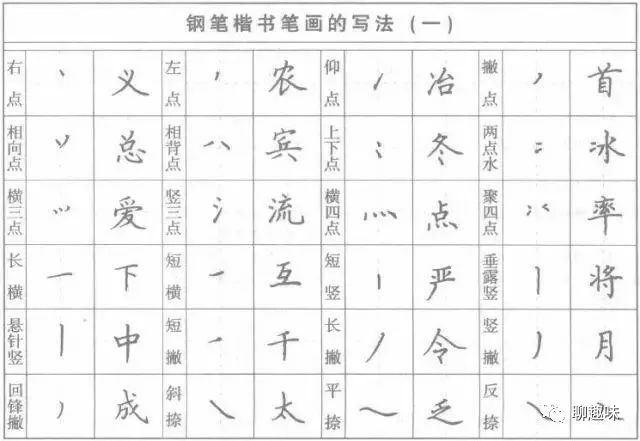 钢笔楷书笔画的写法（一）
右点 丶 义 左点 农 仰点 冶 撇点 首
相向点 丷 总 相背点 八 宾 上下点 冬 两点水 冫 冰
横三点 爱 竖三点 氵 流 横四点 灬 点 聚四点 率
长横 一 下 短横 一 互 短竖 丨 严 垂露竖 丨 将
悬针竖 丨 中 短撇 千 长撇 丿 令 竖撇 丿 月
回锋撇 成 斜捺 ㇏ 太 平捺 乏 反捺
聊趣味